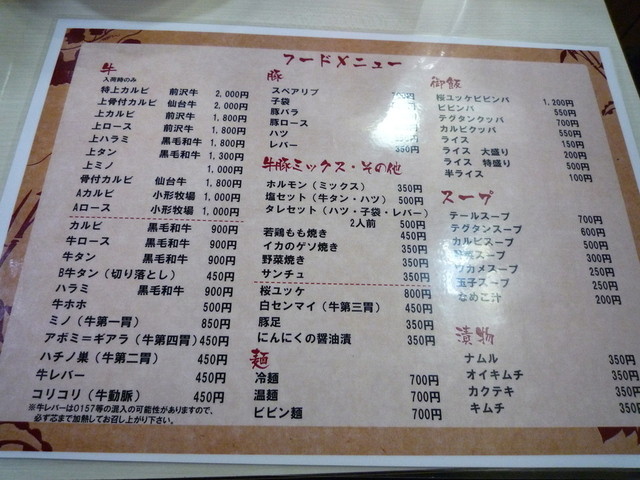 フードメニュー
牛
入荷時のみ
特上カルビ 前沢牛 2,000円
上骨付カルビ 仙台牛 2,000円
上カルビ 前沢牛 1,800円
上ロース 前沢牛 1,800円
上ハラミ 黒毛和牛 1,800円
上タン 黒毛和牛 1,300円
上ミノ 1,000円
骨付カルビ 仙台牛 1,800円
Aカルビ 小形牧場 1,000円
Aロース 小形牧場 1,000円
カルビ 黒毛和牛 900円
牛ロース 黒毛和牛 900円
牛タン 黒毛和牛 900円
B牛タン（切り落とし） 450円
ハラミ 黒毛和牛 900円
牛ホホ 500円
ミノ（牛第一胃） 850円
アボミ＝ギアラ（牛第四胃） 450円
ハチノ巣（牛第二胃） 450円
牛レバー 450円
コリコリ（牛動脈） 450円
※牛レバーはO157等の混入の可能性がありますので、
必ず芯まで加熱してお召し上がり下さい。
豚
スペアリブ
子袋
豚バラ
豚ロース
ハツ
レバー 350円
牛豚ミックス・その他
ホルモン（ミックス） 350円
塩セット（牛タン・ハツ） 500円
タレセット（ハツ・子袋・レバー）
2人前 500円
若鶏もも焼き 450円
イカのゲソ焼き 350円
野菜焼き 350円
サンチュ 350円
桜ユッケ 800円
白センマイ（牛第三胃） 450円
豚足 350円
にんにくの醤油漬 350円
麺
冷麺 700円
温麺 700円
ビビン麺 700円
御飯
桜ユッケビビンバ 1,200円
ビビンバ 550円
テグタンクッパ 700円
カルビクッパ 550円
ライス 150円
ライス 大盛り 200円
ライス 特盛り 500円
半ライス 100円
スープ
テールスープ 700円
テグタンスープ 600円
カルビスープ 500円
スープ 300円
ワカメスープ 250円
玉子スープ 250円
なめこ汁 200円
漬物
ナムル 350円
オイキムチ 350円
カクテキ 350円
キムチ 350円